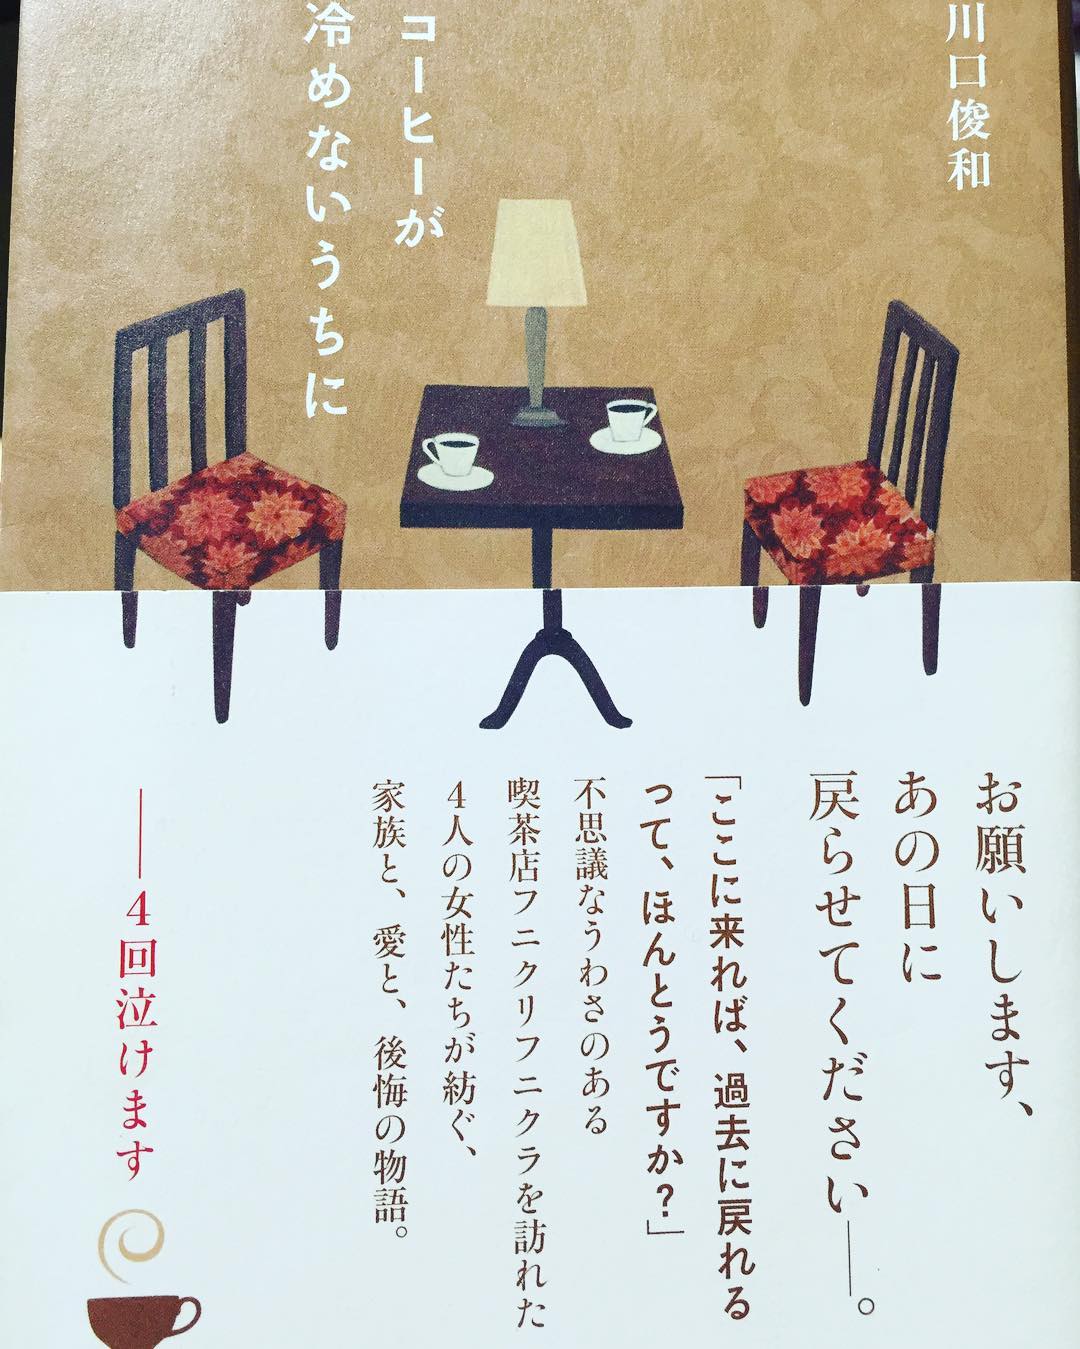 川口俊和
コーヒーが
冷めないうちに
お願いします、
あの日に
戻らせてください――。
「ここに来れば、過去に戻れる
って、ほんとうですか？」
不思議なうわさのある
喫茶店フニクリフニクラを訪れた
4人の女性たちが紡ぐ、
家族と、愛と、後悔の物語。
――4回泣けます